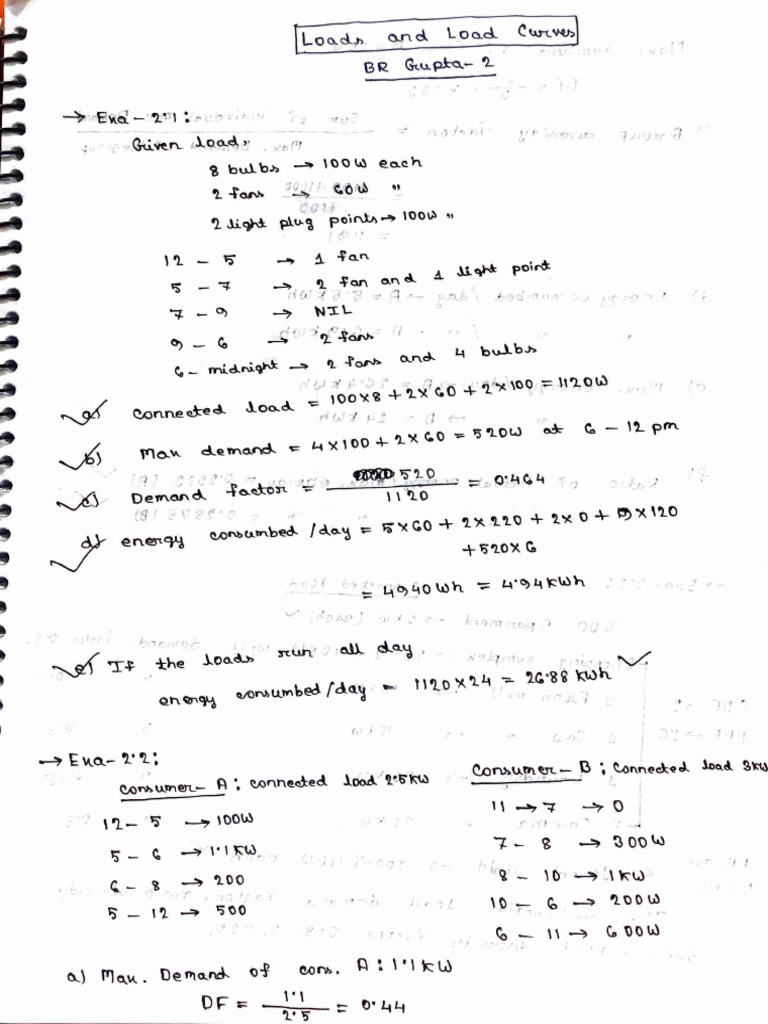 Loads and Load Curves
BR Gupta-2
→ Exa-2.1:
Given load,
8 bulbs → 100W each
2 fans → 60W "
2 light plug points → 100W "
12 - 5 → 1 fan
5 - 7 → 2 fan and 1 light point
7 - 9 → NIL
9 - 6 → 2 fans
6 - midnight → 2 fans and 4 bulbs
a) connected load = 100×8 + 2×60 + 2×100 = 1120W
b) Max demand = 4×100 + 2×60 = 520W at 6 - 12 pm
c) Demand factor = 520/1120 = 0.464
d) energy consumbed /day = 5×60 + 2×220 + 2×0 + 9×120
+ 520×6
= 4940Wh = 4.94kWh
e) If the loads run all day,
energy consumbed/day = 1120×24 = 26.88 kWh
→ Exa-2.2:
Consumer-A: connected load 2.5kW
12 - 5 → 100W
5 - 6 → 1.1kW
6 - 8 → 200
5 - 12 → 500
Consumer-B: Connected load 3kW
11 → 7 → 0
7 - 8 → 300W
8 - 10 → 1kW
10 - 6 → 200W
6 - 11 → 600W
a) Max. Demand of cons. A: 1.1kW
DF = 1.1/2.5 = 0.44